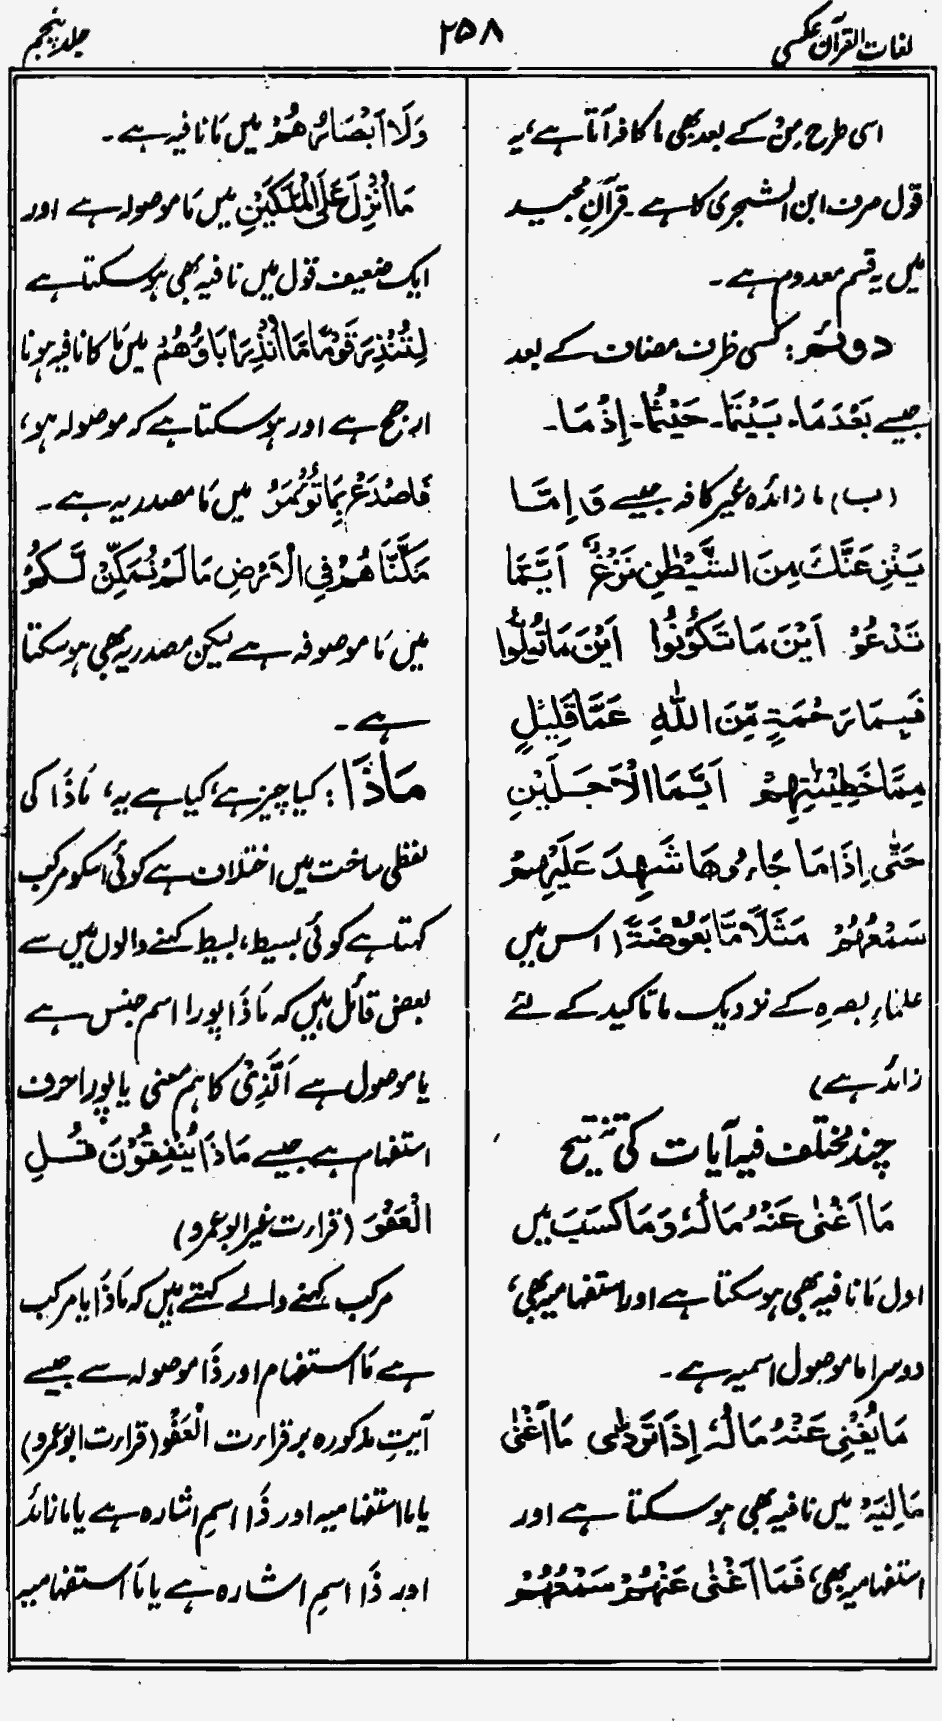 لغات القرآن عکسی
۲۵۸
جلد پنجم
اسی طرح مِنْ کے بعد بھی ما کافہ آتا ہے، یہ
قول صرف ابن الشجری کا ہے۔ قرآنِ مجید
میں یہ قسم معدوم ہے۔
دوئم: کسی ظرف مضاف کے بعد
جیسے بَعْدَمَا۔ بَيْنَمَا۔ حَيْثُمَا۔ إِذْمَا۔
(ب) ما زائدہ غیر کافہ جیسے وَاِمَّا
يَنْزَغَنَّكَ مِنَ الشَّيْطٰنِ نَزْغٌ اَيًّامَّا
تَدْعُوْ اَيْنَ مَا تَكُوْنُوا اَيْنَ مَا تُوَلُّوا
فَبِمَا رَحْمَةٍ مِّنَ اللّٰهِ عَمَّا قَلِيْلٍ
مِمَّا خَطِيْئٰتِهِمْ اَيَّمَا الْاَجَلَيْنِ
حَتّٰى اِذَا مَا جَاءُوهَا شَهِدَ عَلَيْهِمْ
سَمْعُهُمْ مَثَلًا مَّا بَعُوْضَةً (اس میں
علماءِ بصرہ کے نزدیک ما تاکید کے لئے
زائد ہے)
چند مختلف فیہ آیات کی تنقیح
مَا اَغْنٰى عَنْهُ مَالُهٗ وَمَا كَسَبَ میں
اول مَا نافیہ بھی ہو سکتا ہے اور استفہامیہ بھی،
دوسرا ما موصول اسمیہ ہے۔
مَا يُغْنِي عَنْهُ مَالُهٗ إِذَا تَرَدّٰى مَا اَغْنٰى
مَالِيَهْ میں نافیہ بھی ہو سکتا ہے اور
استفہامیہ بھی، فَمَا اَغْنٰى عَنْهُمْ سَمْعُهُمْ
وَلَا اَبْصَارُهُمْ میں مَا نافیہ ہے۔
مَا اُنْزِلَ عَلَى الْمَلَكَيْنِ میں مَا موصولہ ہے اور
ایک ضعیف قول میں نافیہ بھی ہو سکتا ہے
لِتُنْذِرَ قَوْمًا مَّا اُنْذِرَ اٰبَاؤُهُمْ میں مَا کا نافیہ ہونا
ارجح ہے اور ہو سکتا ہے کہ موصولہ ہو،
فَاصْدَعْ بِمَا تُؤْمَرُ میں مَا مصدریہ ہے۔
مَكَّنَّاهُمْ فِي الْاَرْضِ مَا لَمْ نُمَكِّنْ لَّكُمْ
میں مَا موصوفہ ہے لیکن مصدریہ بھی ہو سکتا
ہے۔
مَاذَا: کیا چیز ہے، کیا ہے یہ، مَاذَا کی
لفظی ساخت میں اختلاف ہے کوئی اسکو مرکب
کہتا ہے کوئی بسیط، بسیط کہنے والوں میں سے
بعض قائل ہیں کہ مَاذَا پورا اسم جنس ہے
یا موصول ہے اَلَّذِیْ کا ہم معنی یا پورا حرف
استفہام ہے جیسے مَاذَا يُنْفِقُوْنَ قُلِ
الْعَفْوَ (قرارت غیر ابو عمرو)
مرکب کہنے والے کہتے ہیں کہ مَاذَا یا مرکب
ہے مَا استفہام اور ذَا موصولہ سے جیسے
آیتِ مذکورہ بر قرارت الْعَفْوُ (قرارت ابو عمرو)
یا ما استفہامیہ اور ذَا اسمِ اشارہ ہے یا ما زائد
اور ذَا اسمِ اشارہ ہے یا مَا استفہامیہ